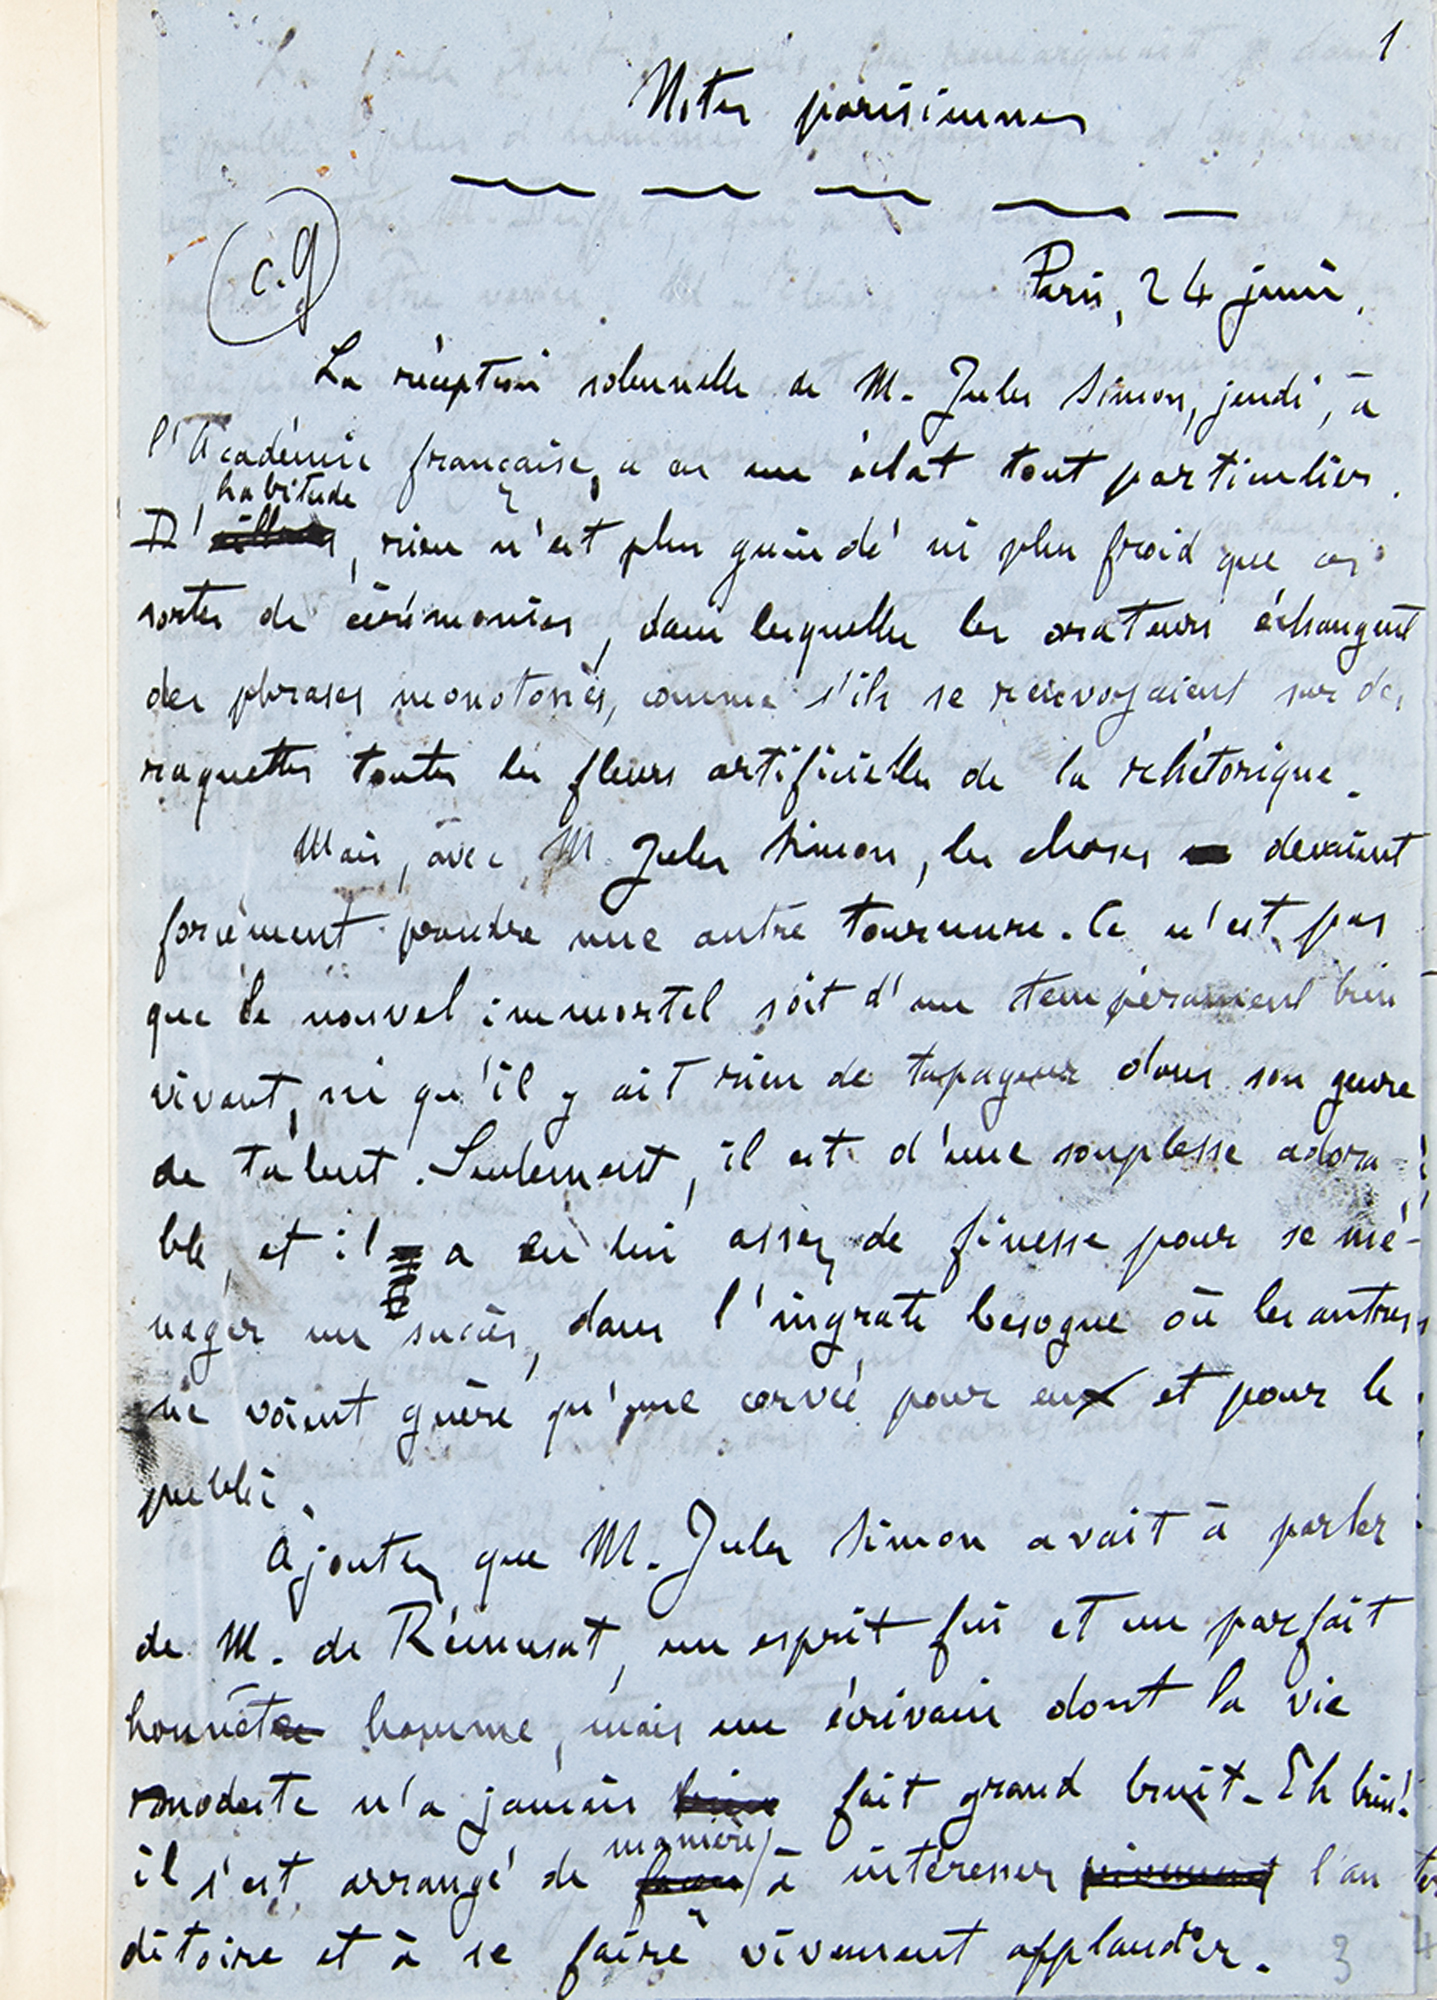 1
Notes parisiennes
c. 9
Paris, 24 juin.
La réception solennelle de M. Jules Simon, jeudi, à
l'Académie française, a eu un éclat tout particulier.
habitude
D', rien n'est plus guindé ni plus froid que ces
sortes de cérémonies, dans lesquelles les orateurs échangent
des phrases monotones, comme s'ils se renvoyaient sur des
raquettes toutes les fleurs artificielles de la rhétorique.
Mais, avec M. Jules Simon, les choses devaient
forcément prendre une autre tournure. Ce n'est pas
que le nouvel immortel soit d'un tempérament bien
vivant, ni qu'il y ait rien de tapageur dans son genre
de talent. Seulement, il est d'une souplesse adora-
ble, et il a en lui assez de finesse pour se mé-
nager un succès, dans l'ingrate besogne où les autres
ne voient guère qu'une corvée pour eux et pour le
public.
Ajoutez que M. Jules Simon avait à parler
de M. de Rémusat, un esprit fin et un parfait
honnête homme, mais un écrivain dont la vie
modeste n'a jamais fait grand bruit. Eh bien!
manière
il s'est arrangé de à intéresser l'au
ditoire et à se faire vivement applaudir.
3